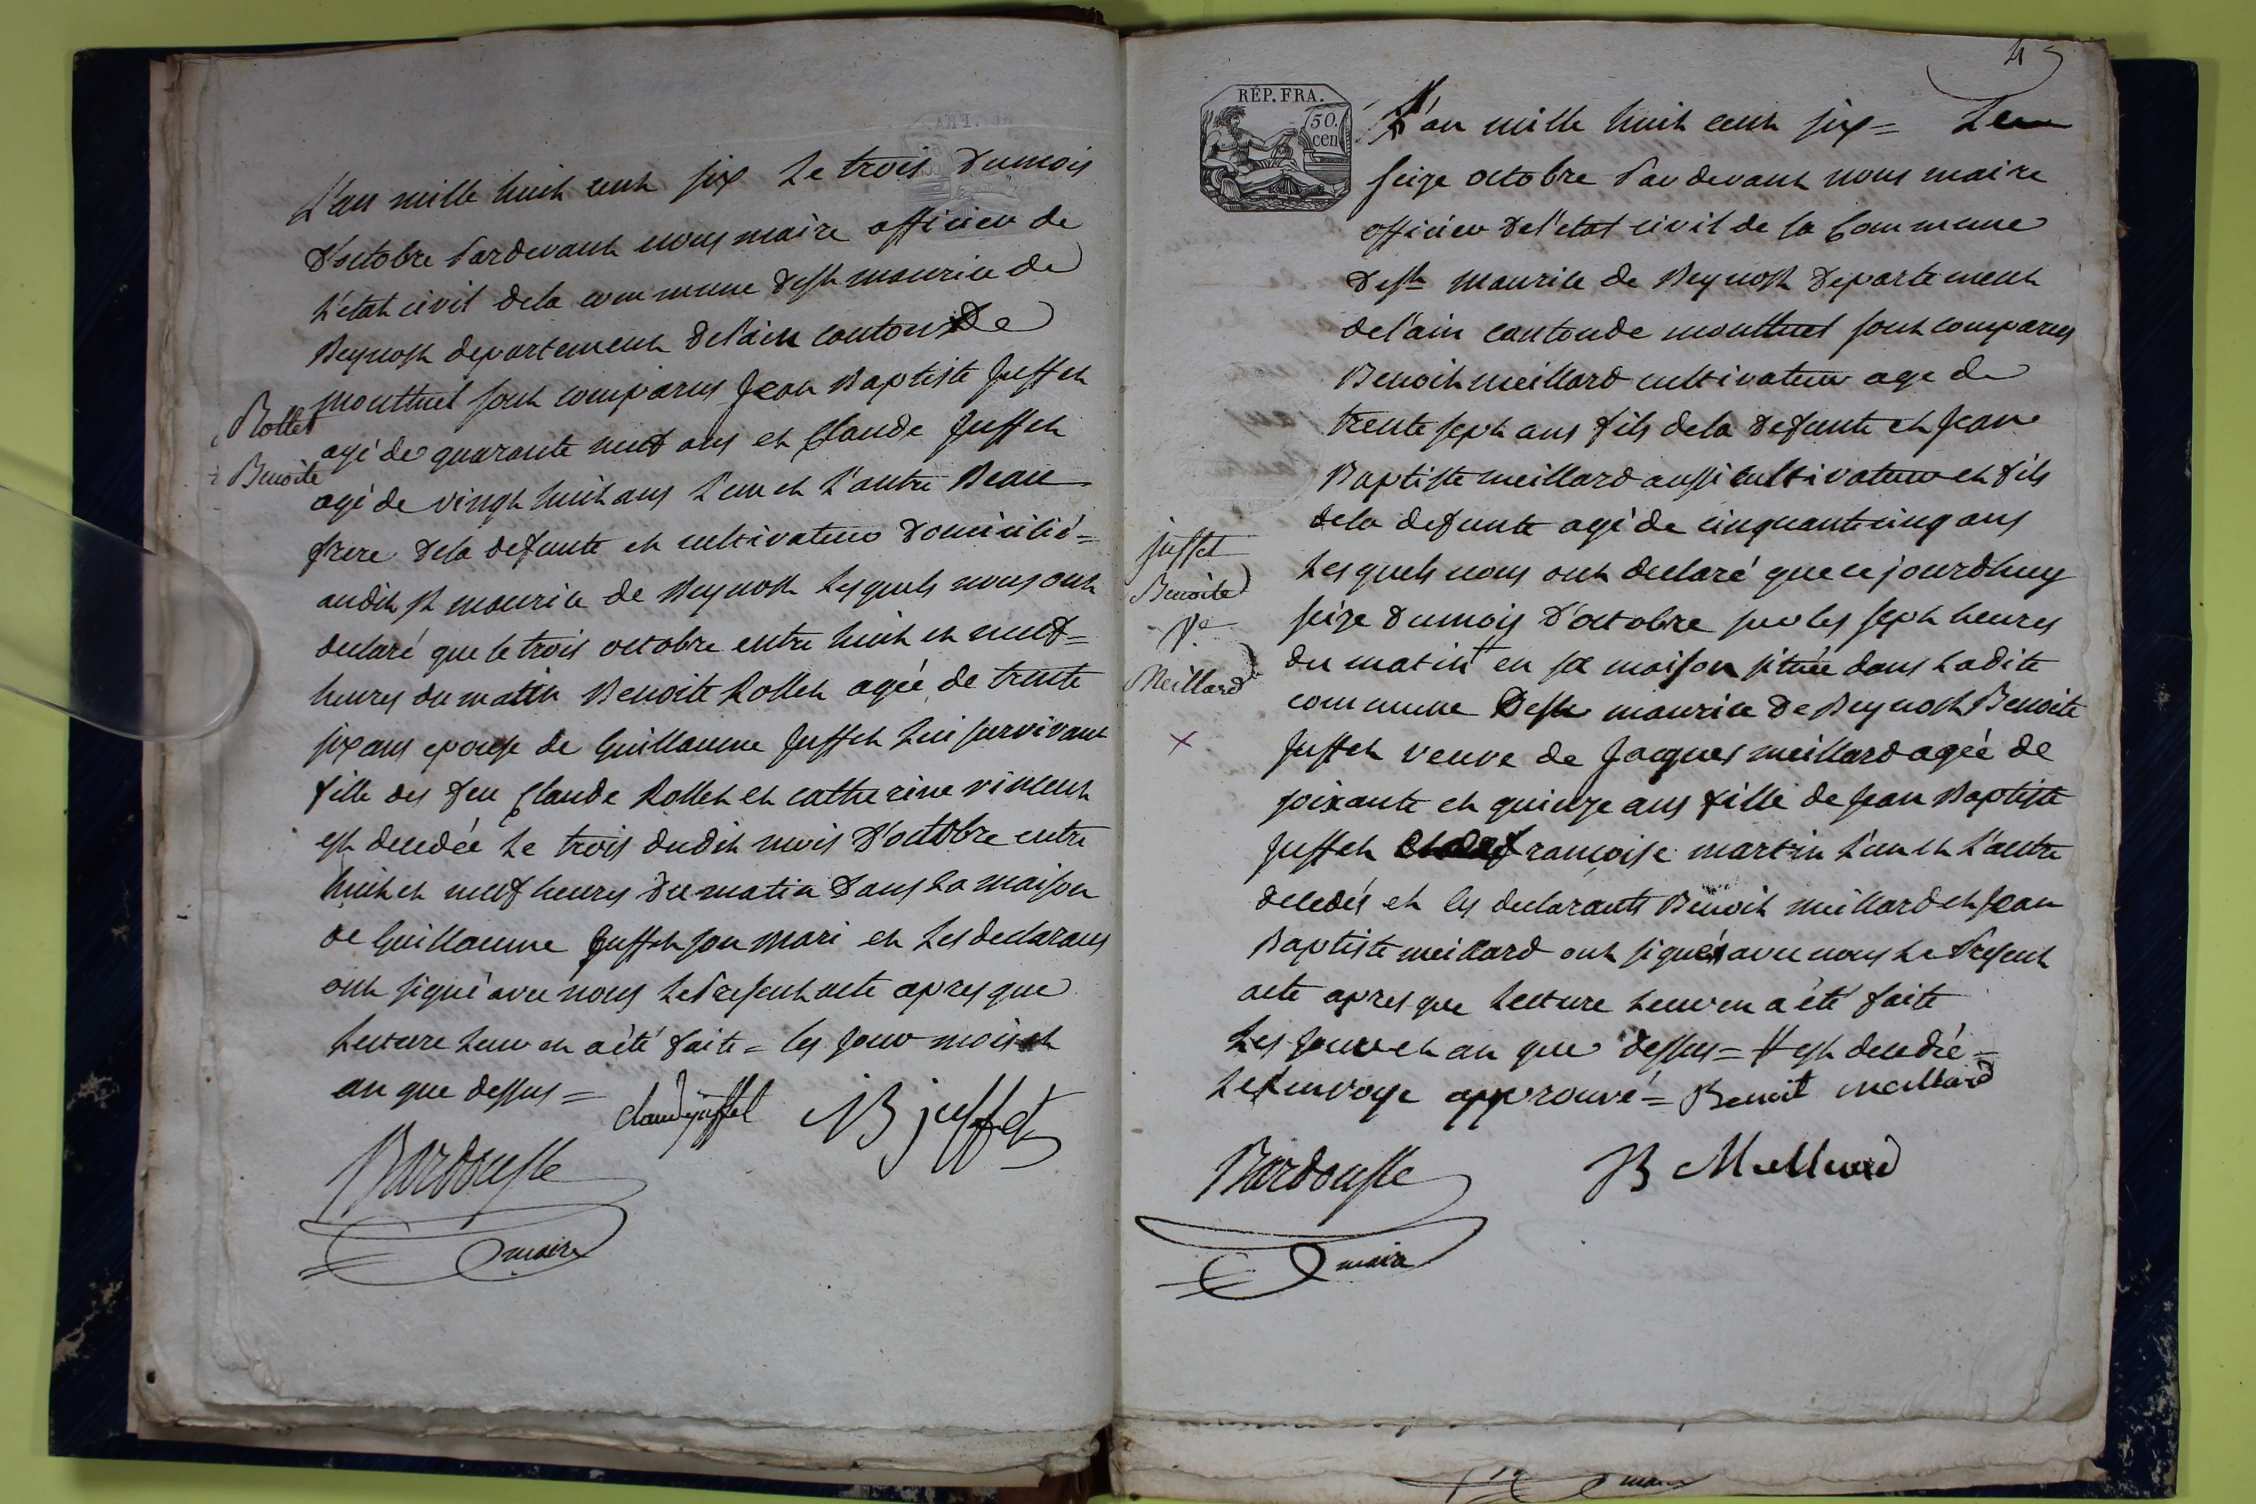 L'an mille huit cent six Le trois Dumois
D'octobre Pardevant nous maire officier de
L'état civil dela commune Dest maurice de
Beynost departement Del'ain canton De
montluel sont comparus Jean Baptiste Juffet
Rollet
agé de quarante neuf ans et Claude Juffet
Benoite
agé de vingt huit ans L'un et L'autre Beau
frere Dela defunte et cultivateurs Domicilié=
audit St maurice de Beynost Lesquels nous ont
declaré que le trois octobre entre huit et neuf=
heures du matin Benoite Rollet agée de trente
six ans epouse de Guillaume Juffet Lui survivant
fille des feu Claude Rollet et catherine vincent
est decedée Le trois dudit mois D'octobre entre
huit et neuf heures Du matin Dans La maison
de Guillaume Juffet son Mari et Les declarans
ont signé avec nous Le Present acte apres que
Lecture Leur en a été faite = les jour mois et
an que dessus =
claude juffet JB juffet
Bardousse
maire
45
REP. FRA.
50.
cen
L'an mille huit cent six = Le
seize octobre Par devant nous maire
officier De l'etat civil de la Commune
Dest maurice de Beynost Departement
de l'ain canton de montluel sont comparus
Benoit meillard cultivateur age de
trente sept ans fils dela Defunte et Jean
Baptiste meillard aussi cultivateur et fils
dela defunte agé de cinquante cinq ans
Lesquels nous ont declaré que ce jourdhuy
seize Dumois D'octobre sur les sept heures
du matin # en sa maison située dans Ladite
commune Dest maurice De Beynost Benoite
Juffet
Benoite
Ve
Meillard
Juffet veuve de Jacques meillard agée de
soixante et quinze ans fille de Jean Baptiste
Juffet francoise martin L'un et L'autre
decedés et les declarants Benoit meillard et Jean
Baptiste meillard ont signés avec nous Le Present
acte apres que Lecture Leur en a été faite
Les jour et an que dessus = # est decedée =
Le Renvoye approuvé = Benoit meillard
Bardousse
JB Meillard
maire